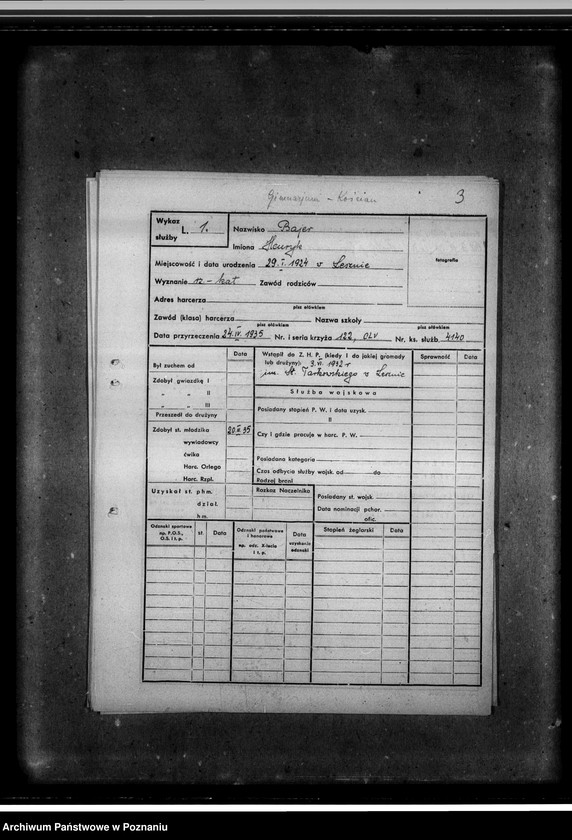 Gimnazjum - Kościan
3
Wykaz L. 1.
służby
Nazwisko Bajer
Imiona Henryk
fotografia
Miejscowość i data urodzenia 29.I.1924 w
Wyznanie rz-kat Zawód rodziców
Adres harcerza
pisz ołówkiem
Zawód (klasa) harcerza Nazwa szkoły
pisz ołówkiem pisz ołówkiem
Data przyrzeczenia 24.IV.1935 Nr. i seria krzyża 122, OLV Nr. ks. służb 4140
Data
Był zuchem od
Zdobył gwiazdkę I
„ „ II
„ „ III
Przeszedł do drużyny
Zdobył st. młodzika 20 II 35
wywiadowcy
ćwika
Harc. Orlego
Harc. Rzpl.
Uzyskał st. phm.
dział.
hm.
Wstąpił do Z. H. P. (kiedy i do jakiej gromady
lub drużyny) 3.VI 1932 r
im. St. Tarkowskiego w
Służba wojskowa
Posiadany stopień P. W. i data uzysk.
II
Czy i gdzie pracuje w harc. P. W.
Posiadana kategoria
Czas odbycia służby wojsk. od do
Rodzaj broni
Rozkaz Naczelnika
Posiadany st. wojsk.
Data nominacji pchor.
ofic.
Sprawność Data
Odznaki sportowe
np. P.O.S.,
O.S. i t. p.
st. Data
Odznaki państwowe
i honorowe
np. odz. X-lecia
i t. p.
Data
uzyskania
odznaki
Stopień żeglarski Data
Archiwum Państwowe w Poznaniu